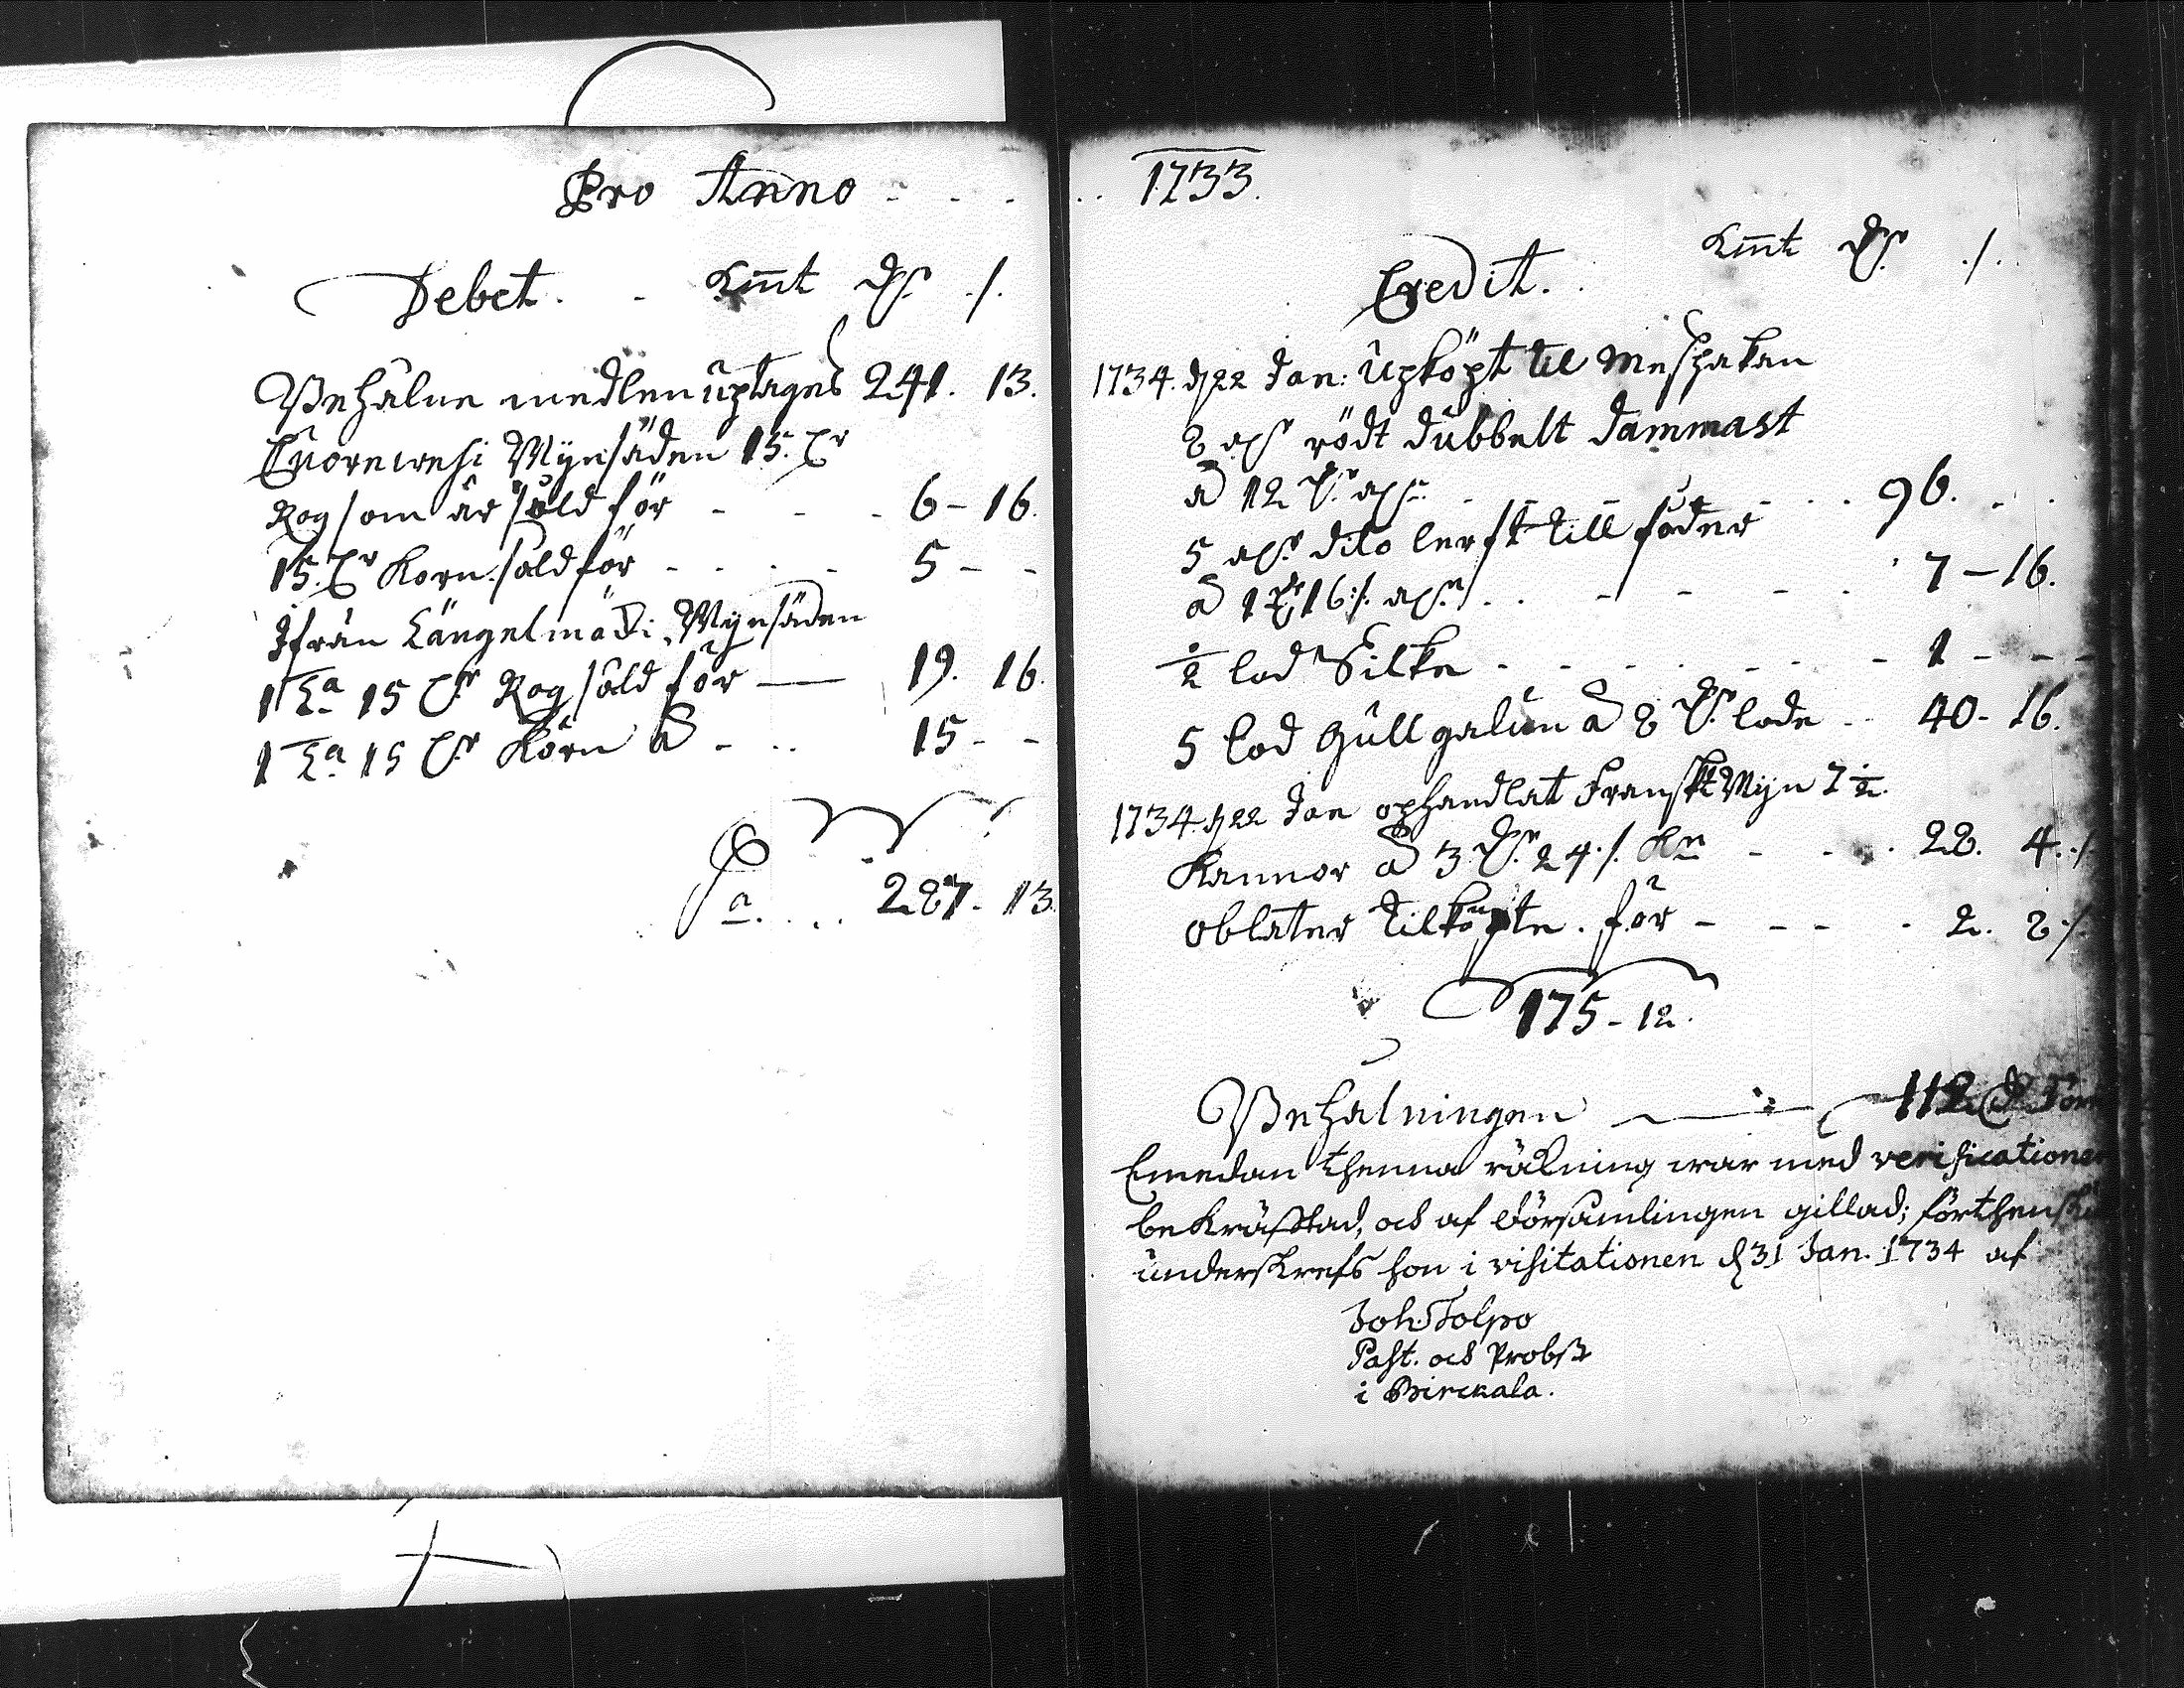 Pro Anno - - -
Debet. - Kmt dr ./.
Behålne medlen uptages 241. 13.
Cuorewesi Wijnsäden 15. Cr
Rog som är såld för - - - 6 - 16.
15. Cr Korn såld för - - - - 5 - -
Ifrån Längelmäki Wijnsäden
1 Ta 15 Cr Rog såld för — 19. 16.
1 Ta 15 Cr Korn á - .. 15 - -
Sa. . . . 287. 13.
.. 1733.
Credit. . Kmt dr ./.
1734. d 22 Jan: Upköpt til Meshakan
8 alr rödt dubbelt Dammast
á 12 dr alr. - - - - . . 96. . .
5 alr dito lerft till foder
á 1 dr 16 ./. alr. . . - - - . . 7 - 16.
½ lod Silke - - - - - - - 1 - - -
5 lod Gull galun á 8 dr lode - - 40 - 16.
1734. d 22 Jan ophandlat Franskt Wijn 7½
Kannor á 3 dr 24 ./. Kn - - - . 28. 4 ./.
Oblater tilköpte för - - - - . 2. 8 ./.
175 - 12.
Behålningen — 112
Emedan thenna räkning war med verificationer
bekräfftad, och af församlingen gillad; förthenskul
underskrefs hon i visitationen d 31 Jan. 1734 af
Joh. Tolpo
Past. och Probst
i Birckala.